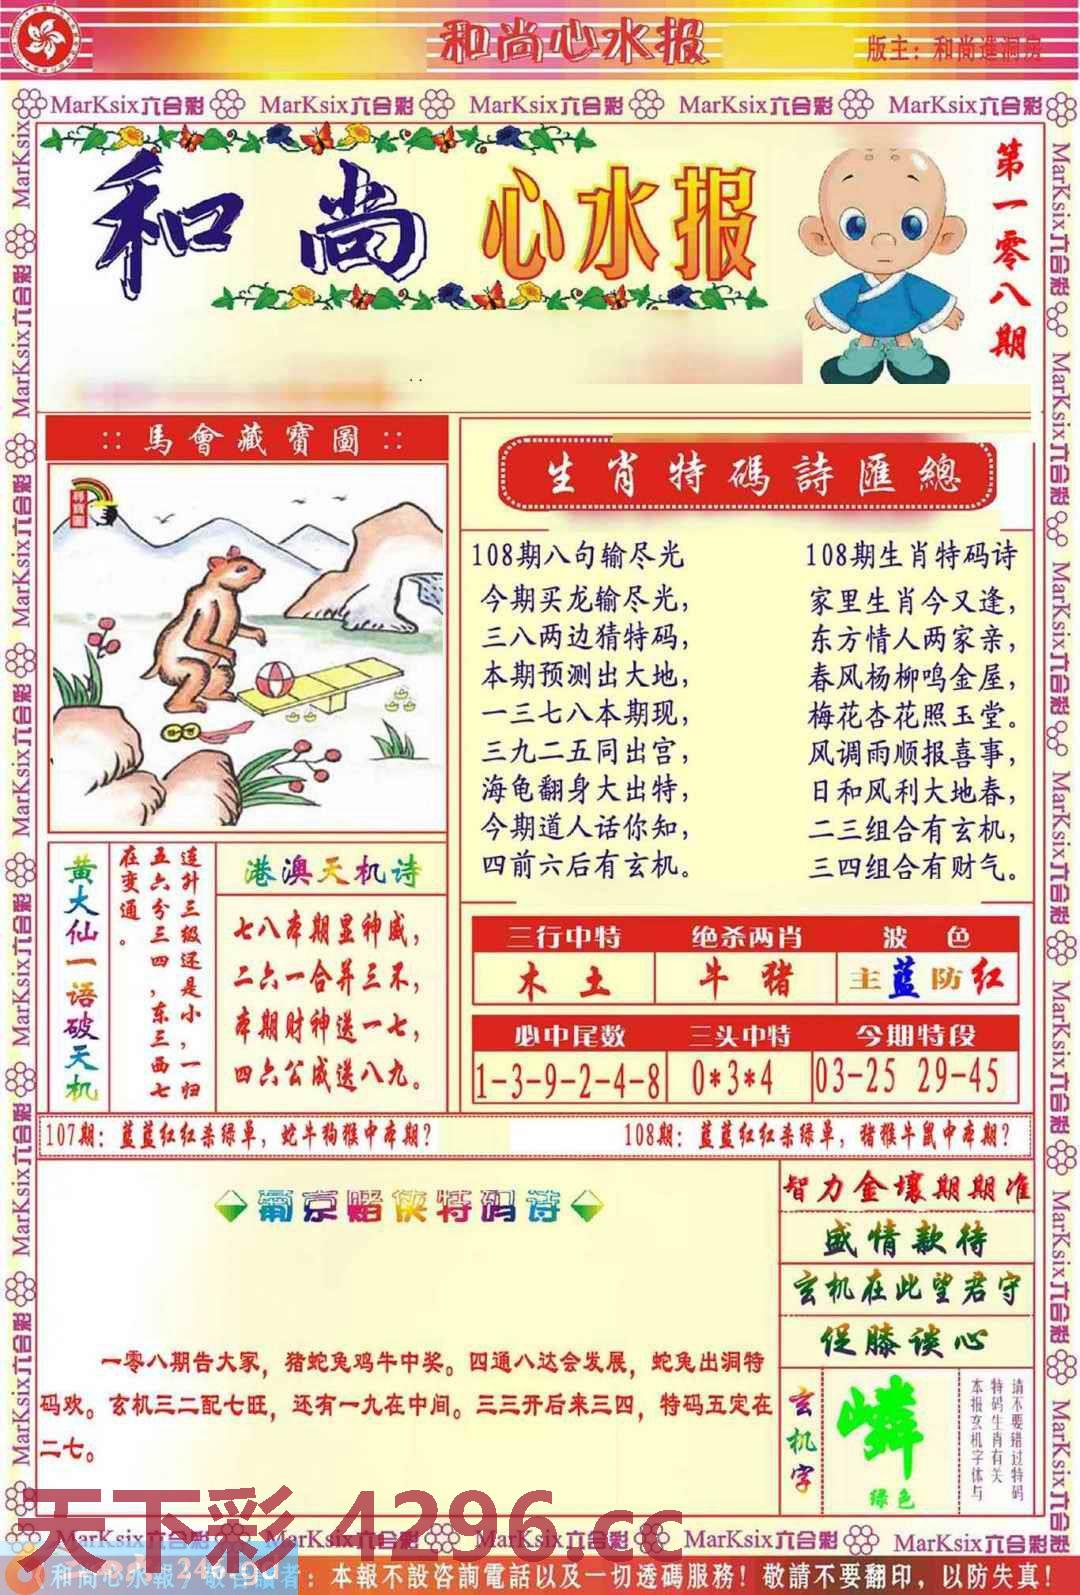 和尚心水报
版主：和尚進洞房
MarKsix六合彩 MarKsix六合彩 MarKsix六合彩 MarKsix六合彩 MarKsix六合彩
和尚心水报
第一零八期
:: 馬會藏寶圖 ::
尋寶圖
生肖特碼詩匯總
108期八句输尽光
今期买龙输尽光，
三八两边猜特码，
本期预测出大地，
一三七八本期现，
三九二五同出宫，
海龟翻身大出特，
今期道人话你知，
四前六后有玄机。
108期生肖特码诗
家里生肖今又逢，
东方情人两家亲，
春风杨柳鸣金屋，
梅花杏花照玉堂。
风调雨顺报喜事，
日和风利大地春，
二三组合有玄机，
三四组合有财气。
黄大仙一语破天机
连升三级还是小，一归
五六分三四，东三西七
在变通。
港澳天机诗
七八本期显神威，
二六一合并三不，
本期财神送一七，
四六公成送八九。
三行中特 绝杀两肖 波色
木土 牛猪 主蓝防红
必中尾数 三头中特 今期特段
1-3-9-2-4-8 0*3*4 03-25 29-45
107期：蓝蓝红红杀绿单，蛇牛狗猴中本期？
108期：蓝蓝红红杀绿单，猪猴牛鼠中本期？
葡京赌侠特码诗
一零八期告大家，猪蛇兔鸡牛中奖。四通八达会发展，蛇兔出洞特
码欢。玄机三二配七旺，还有一九在中间。三三开后来三四，特码五定在
二七。
智力金壤期期准
盛情款待
玄机在此望君守
促膝谈心
玄机字
嶙
绿色
请不要错过特码
特码生肖有关
本报玄机字体与
天下彩 4296.cc
MarKsix六合彩 MarKsix六合彩 MarKsix六合彩 MarKsix六合彩 MarKsix六合彩
：本報不設咨詢電話以及一切透碼服務！敬請不要翻印，以防失真！